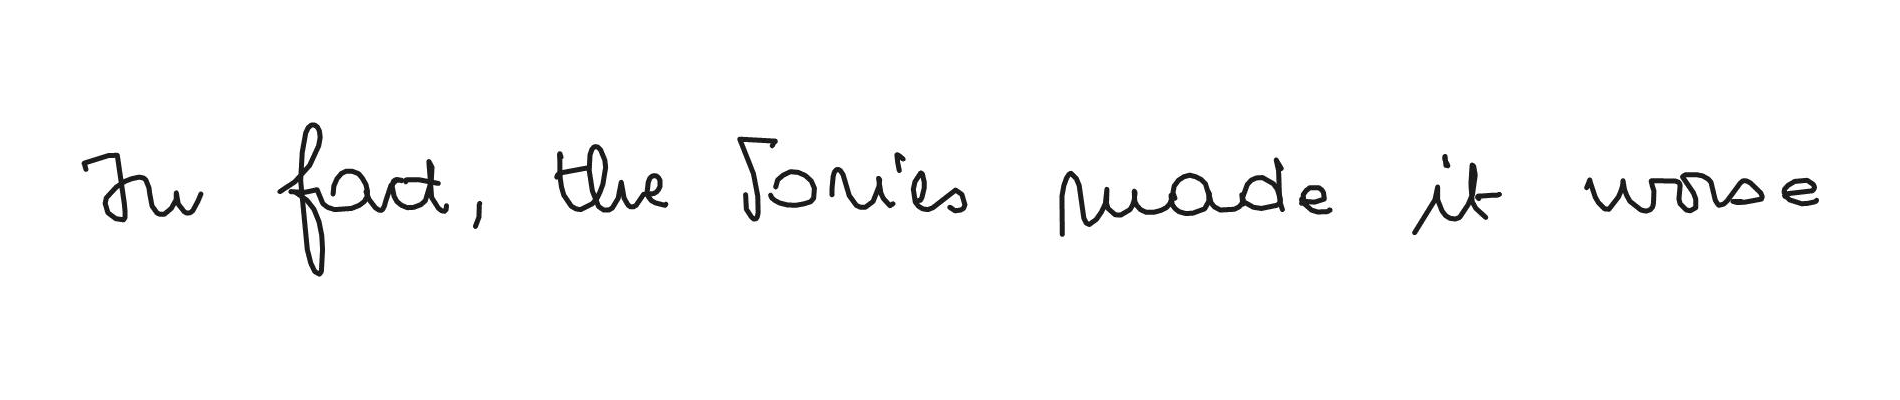 In fact, the Tories made it worse